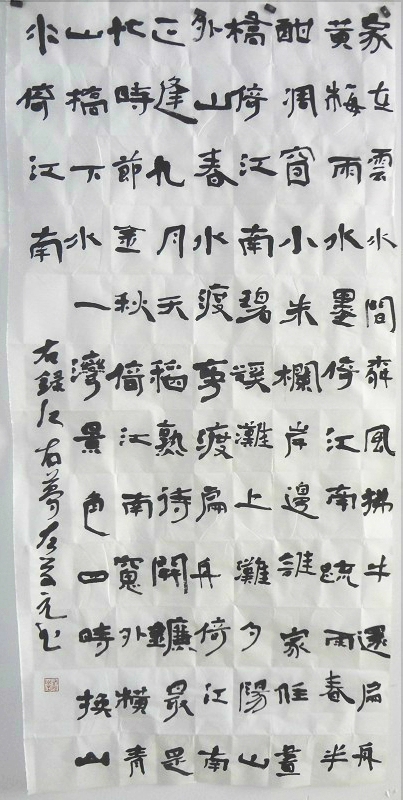 家在雲水間風拂牛還扁舟
黃梅雨水墨倚江南疏雨春半
酣凋窗小朱欄岸邊誰家畫
橋倚江南碧溪灘上灘夕陽山
外山春水渡事渡扁舟倚江南
正逢九月天稻熟待開鐮最是
此時節金秋倚江南窗外橫青
山橋下水一灣景色四時換山
水倚江南
右錄江右夢